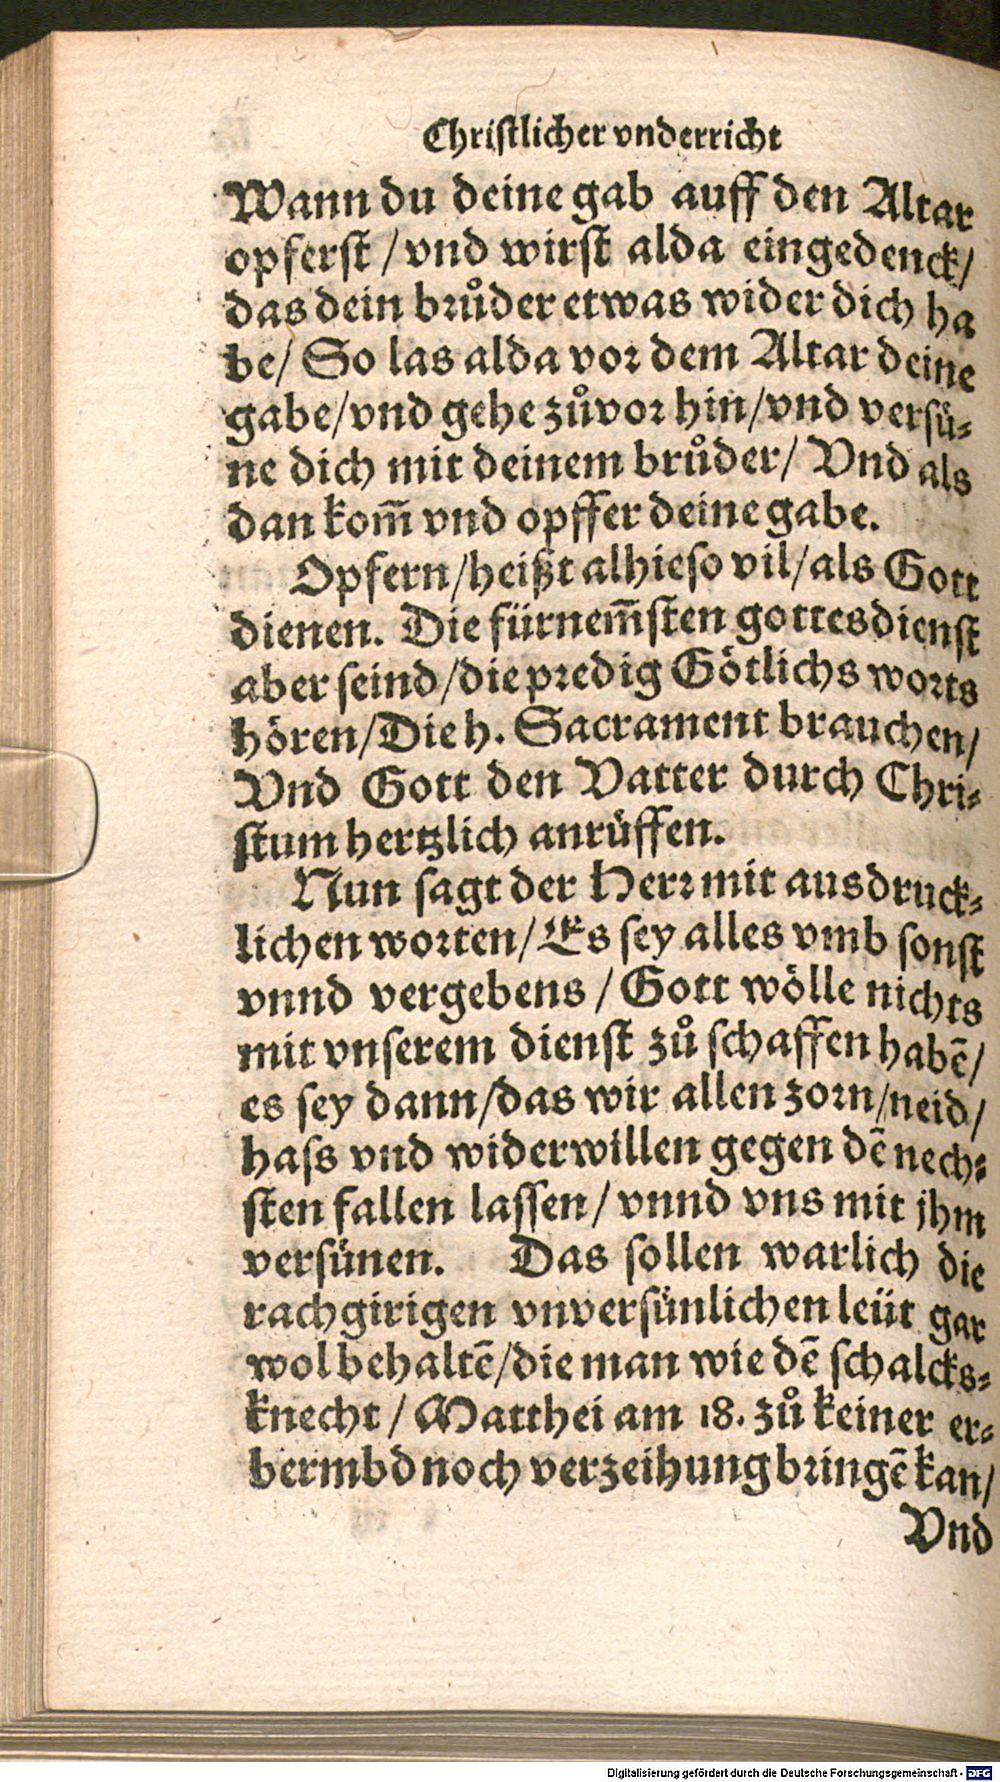 Chriſtlicher vnderricht
Wann du deine gab auff den Altar
opferſt / vnd wirſt alda eingedenck/
das dein bꝛůder etwas wider dich ha
be/ So las alda voꝛ dem Altar deine
gabe/vnd gehe zůvoꝛ hin/vnd verſü⸗
ne dich mit deinem brůder/ Vnd als
dan kom̄ vnd opffer deine gabe.
Opfern/heißt alhie ſo vil/als Gott
dienen. Die fürnem̄ſten gottesdienſt
aber ſeind/die pꝛedig Götlichs woꝛts
hören/Die h. Sacrament brauchen/
Vnd Gott den Vatter durch Chri⸗
ſtum hertzlich anrüffen.
Nun ſagt der Herꝛ mit ausdruck⸗
lichen woꝛten/ Es ſey alles vmb ſonſt
vnnd vergebens / Gott wölle nichts
mit vnſerem dienſt zů ſchaffen habē/
es ſey dann/das wir allen zoꝛn/neid/
haſs vnd widerwillen gegen dē nech⸗
ſten fallen laſſen/ vnnd vns mit jhm
verſünen. Das ſollen warlich die
rachgirigen vnverſünlichen leüt gar
wol behaltē/die man wie dē ſchalcks⸗
knecht / Matthei am 18. zů keiner er⸗
bermbd noch verzeihung bꝛingē kan/
Vnd
Digitalisierung gefördert durch die Deutsche Forschungsgemeinschaft - DFG